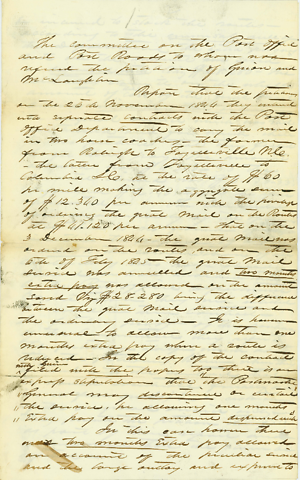 1
The committee on the Post Office
and Post Roads to whom was
referred the petition of Guion and
McLaughlin
Report that the petitioners
on the 23d November 1846 they entered
into separate contracts with the Post
Office Department to carry the mail
in two horse coaches the former
from Raleigh to Fayetteville N.C.
the latter from Fayetteville to
Columbia S.C. at the rate of $60
per mile making the aggregate sum
of $12.340 per annum with the privilege
of ordering the great Mail on the Routes
at $41.120 per annum – that on the
3 December 1846 the great Mail was
ordered on the route, and on the
5th of July the great Mail
service was annulled and two months
extra pay was allowed on the amount
of $28.780 being the difference
between the great Mail service and
the ordinary mail – It is
unusual to allow more than one
months extra pay when a route is
reduced – In the copy of the contract
filed with the papers too there is an
express stipulation that the Postmaster
General may discontinue or curtail
the service, he allowing one months
Extra pay on the amount dispensed with
In this case however there
was two months Extra pay allowed
on account of the peculiar
and the large outlay and expense